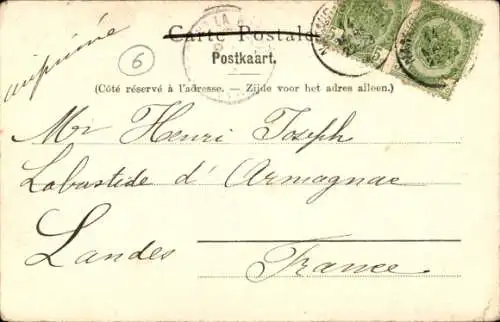 Carte Postale
Postkaart.
(Côté réservé à l'adresse. – Zijde voor het adres alleen.)
imprimé
6
LA
Mr Henri Joseph
Labastide d'Armagnac
Landes
France